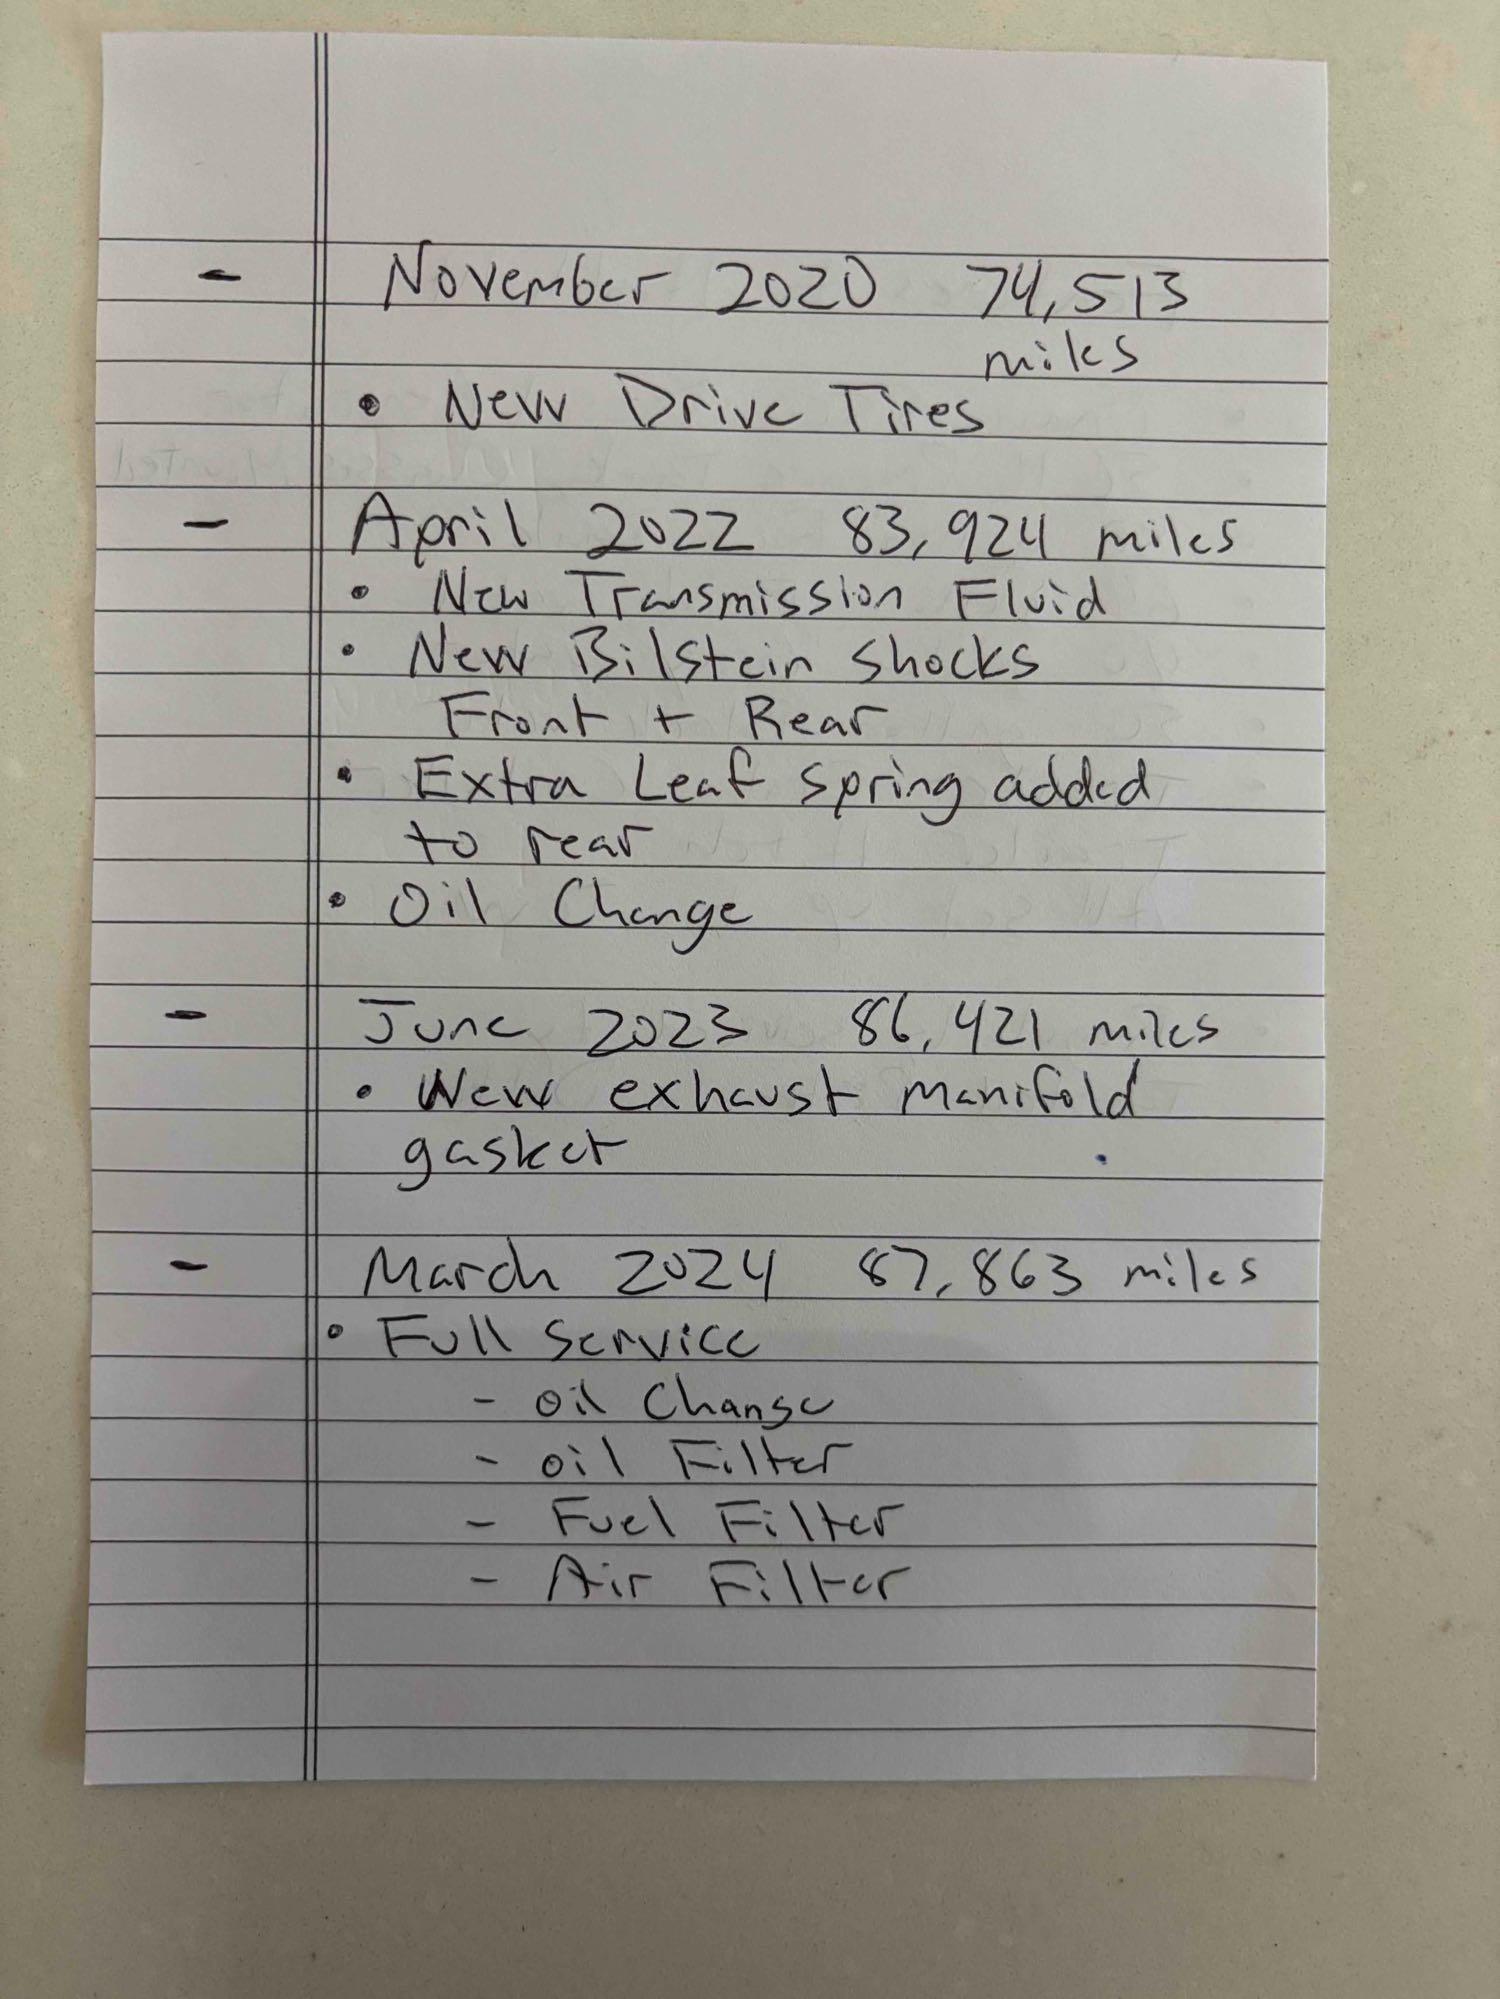 - November 2020 74,513
miles
• New Drive Tires
- April 2022 83,924 miles
• New Transmission Fluid
• New Bilstein shocks
Front + Rear
• Extra Leaf spring added
to rear
• Oil Change
- June 2023 86,421 miles
• New exhaust manifold
gasket
- March 2024 87,863 miles
• Full Service
- Oil Change
- Oil Filter
- Fuel Filter
- Air Filter